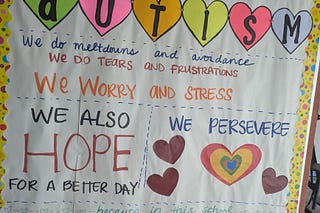 AUTISM
We do meltdowns and avoidance
WE DO TEARS AND FRUSTRATIONS
WE WORRY AND STRESS
WE ALSO
HOPE
FOR A BETTER DAY
WE PERSEVERE
because in this school